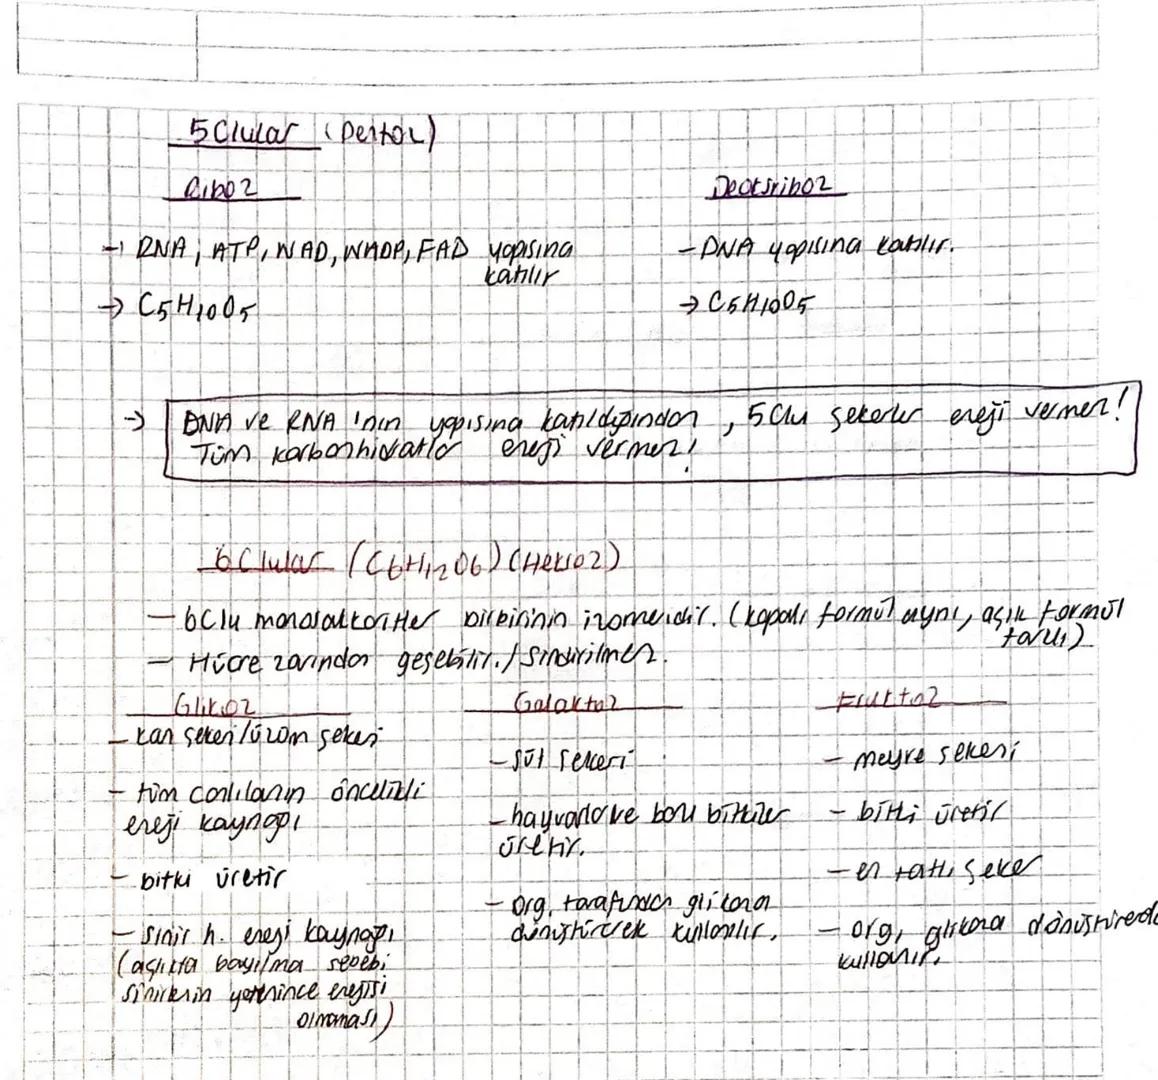 5Clular (Pentoz)
Riboz
Deoksiriboz
→ RNA, ATP, NAD, NADP, FAD yapısına
katılır
- DNA yapısına katılır.
→ C5H10O5
→ C5H10O5
→ DNA ve RNA'nın yapısına katıldığından, 5Clu şekerler enerji vermez!
Tüm karbonhidratlar enerji vermez!
6Clular (C6H12O6) (Heksoz)
- 6Clu monosakkaritler birbirinin izomeridir. (kapalı formül aynı, açık formül
farklı)
- Hücre zarından geçebilir. / Sindirilmez.
Glikoz
Galaktoz
Fruktoz
- kan şekeri/üzüm şekeri
- süt şekeri
- meyve şekeri
- tüm canlıların öncelikli
enerji kaynağı
- hayvanlar ve bazı bitkiler
üretir.
- bitki üretir
- bitki üretir
- en tatlı şeker
- org. tarafından glikoza
dönüştürerek kullanılır.
- sinir h. enerji kaynağı
(açlıkta bayılma sebebi
sinirlerin yeterince enerjisi
olmaması)
- org, glikoza dönüştürerek
kullanır.